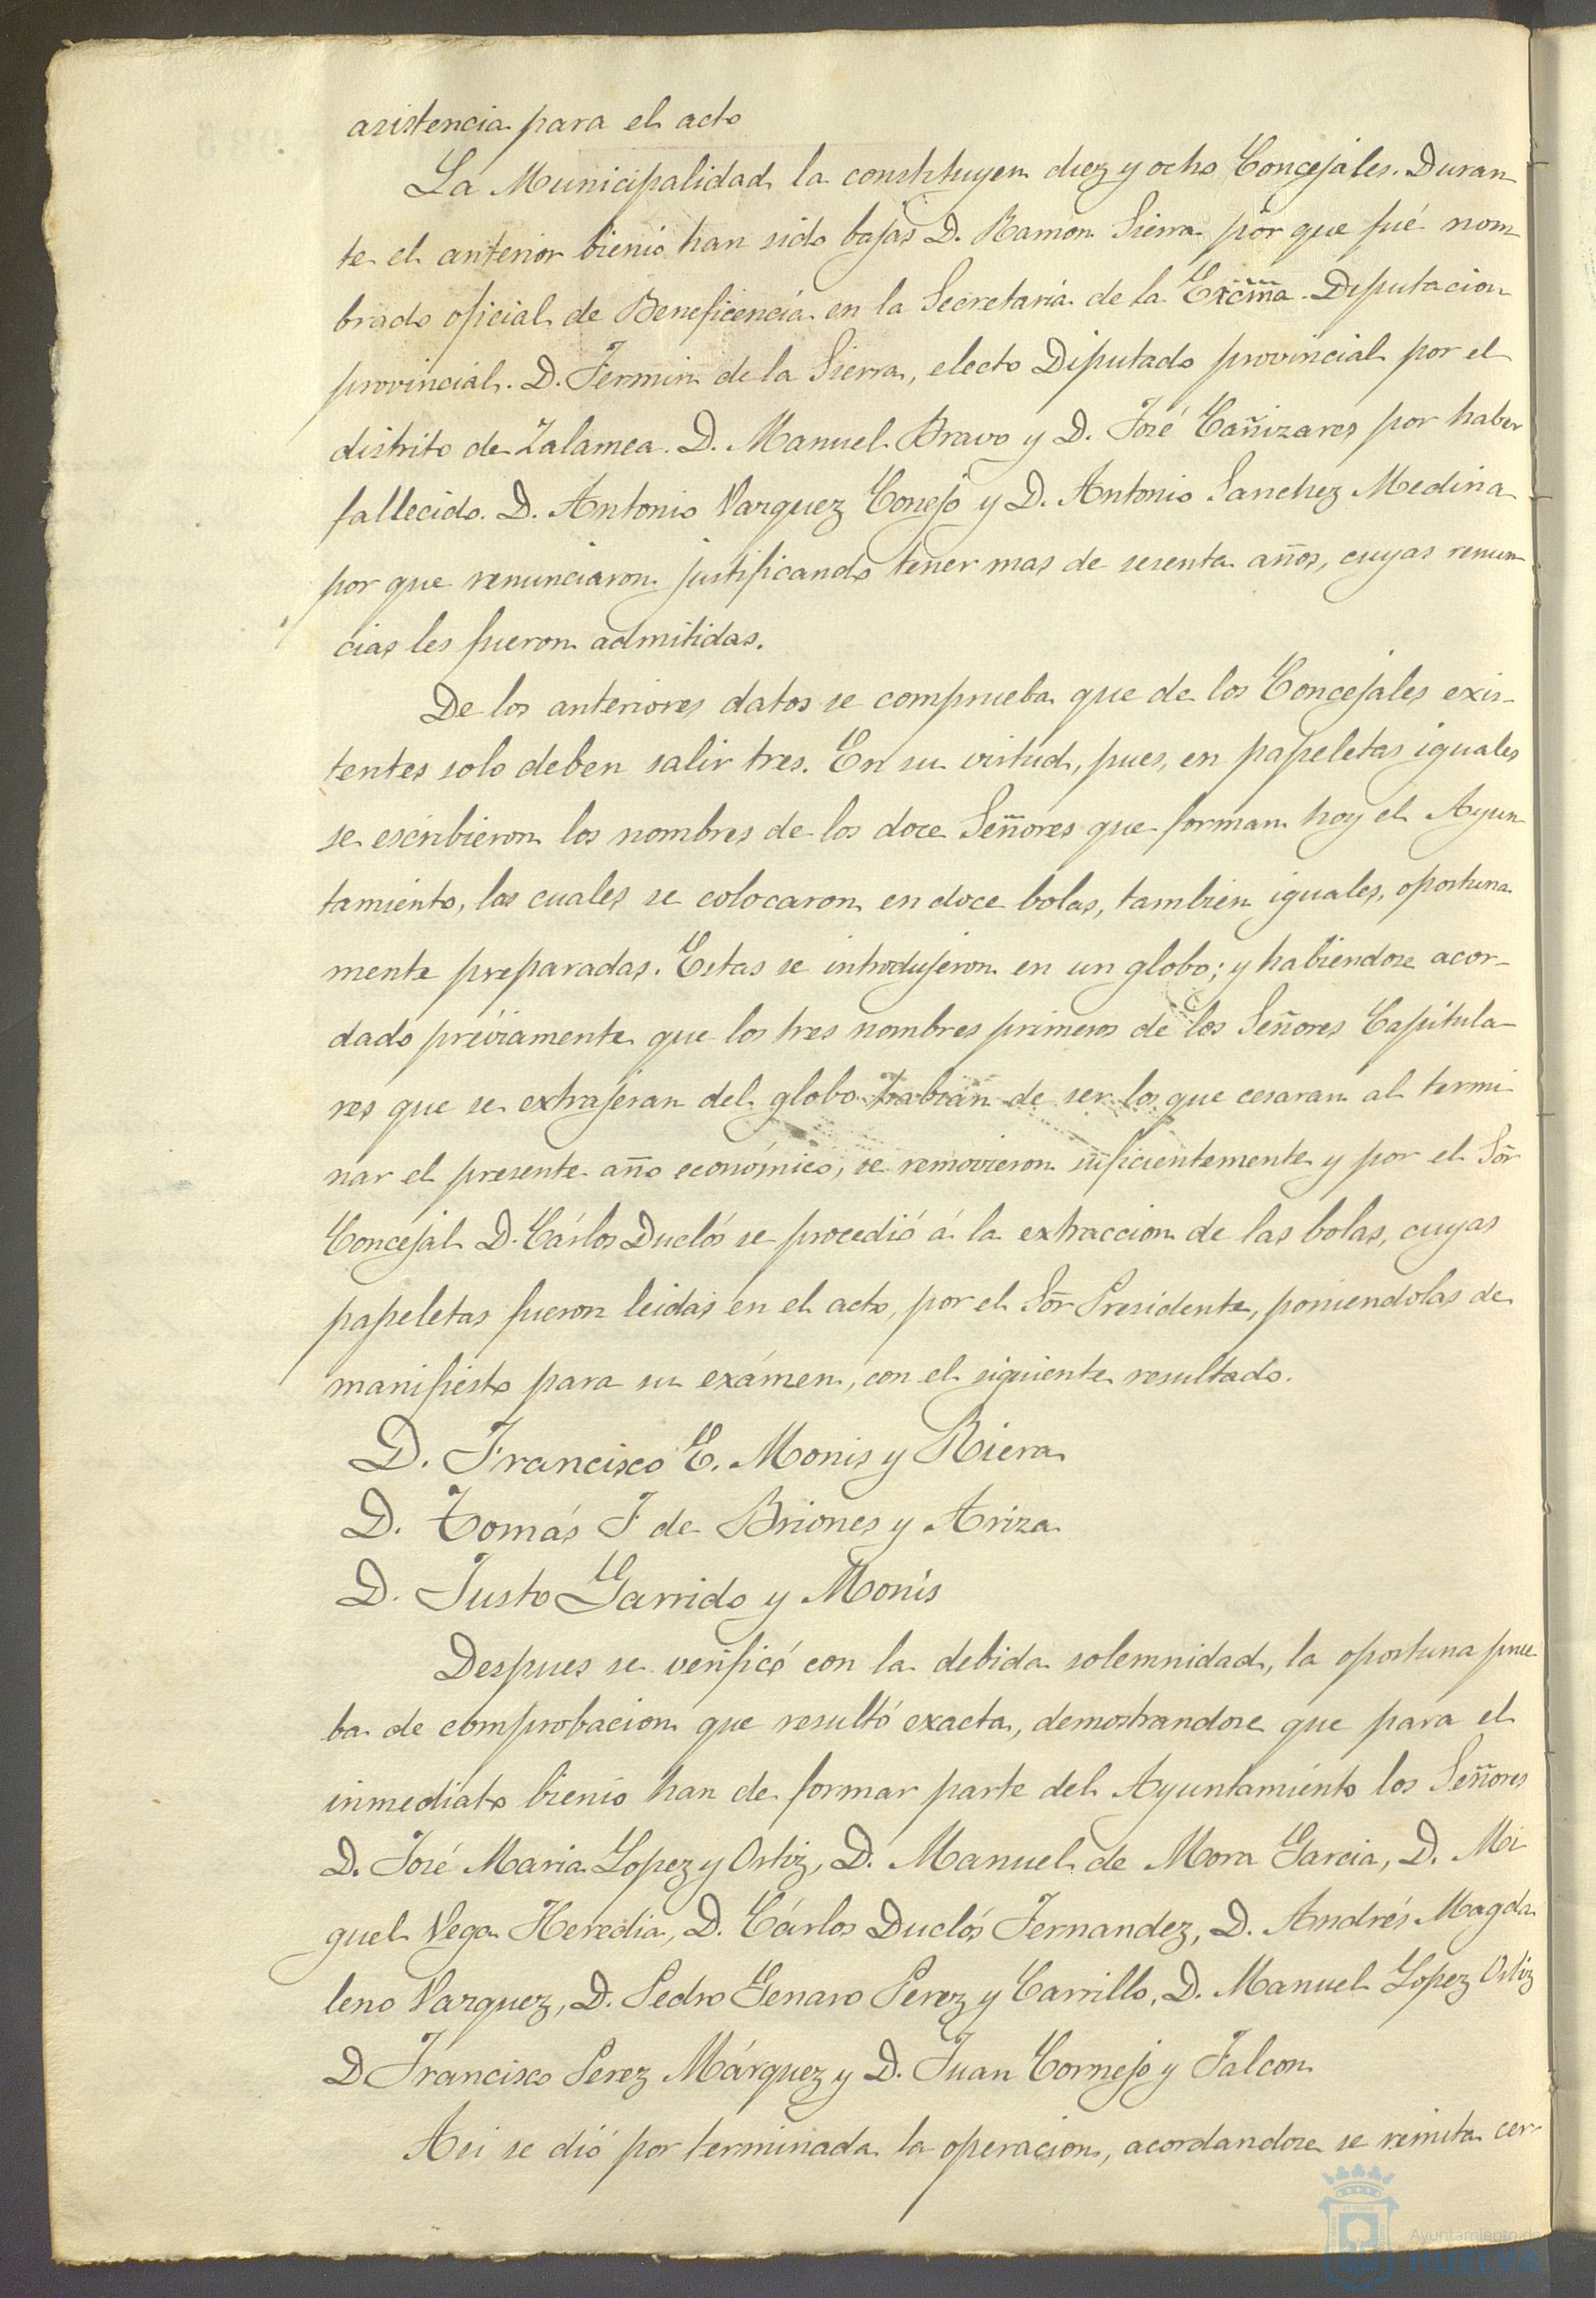 asistencia para el acto
La Municipalidad la constituyen diez y ocho Concejales. Duran
te el anterior bienio han sido bajas D. Ramon Sierra por que fué nom
brado oficial de Beneficencia en la Secretaria de la Excma. Diputacion
provincial. D. Fermin de la Sierra, electo Diputado provincial por el
distrito de Zalamea. D. Manuel Bravo y D. José Cañizares por haber
fallecido. D. Antonio Vazquez Conejo y D. Antonio Sanchez Medina
por que renunciaron justificando tener mas de sesenta años, cuyas renun
cias les fueron admitidas.
De los anteriores datos se comprueba que de los Concejales exis-
tentes solo deben salir tres. En su virtud, pues, en papeletas iguales
se escribieron los nombres de los doce Señores que forman hoy el Ayun
tamiento, las cuales se colocaron en doce bolas, tambien iguales, oportuna
mente preparadas. Estas se introdujeron en un globo; y habiendose acor-
dado préviamente que los tres nombres primeros de los Señores Capitula-
res que se extrajeran del globo habian de ser los que cesaran al termi
nar el presente año económico, se removieron suficientemente y por el Sõr
Concejal D. Cárlos Duclós se procedió á la extraccion de las bolas, cuyas
papeletas fueron leidas en el acto, por el Sõr Presidente, poniendolas de
manifiesto para su exámen, con el siguiente resultado.
D. Francisco E. Monis y Riera
D. Tomás F de Briones y Ariza
D. Justo Garrido y Monis
Despues se verificó con la debida solemnidad, la oportuna prue
ba de comprobacion que resultó exacta, demostrandose que para el
inmediato bienio han de formar parte del Ayuntamiento los Señores
D. José Maria Lopez y Ortiz, D. Manuel de Mora Garcia, D. Mi
guel Vega Heredia, D. Cárlos Duclós Fernandez, D. Andrés Magda
leno Vazquez, D. Pedro Genaro Perez y Carrillo, D. Manuel Lopez Ortiz
D Francisco Perez Márquez y D. Juan Cornejo y Falcon
Asi se dió por terminada la operacion, acordandose se remita cer-
Ayuntamiento de
HUELVA